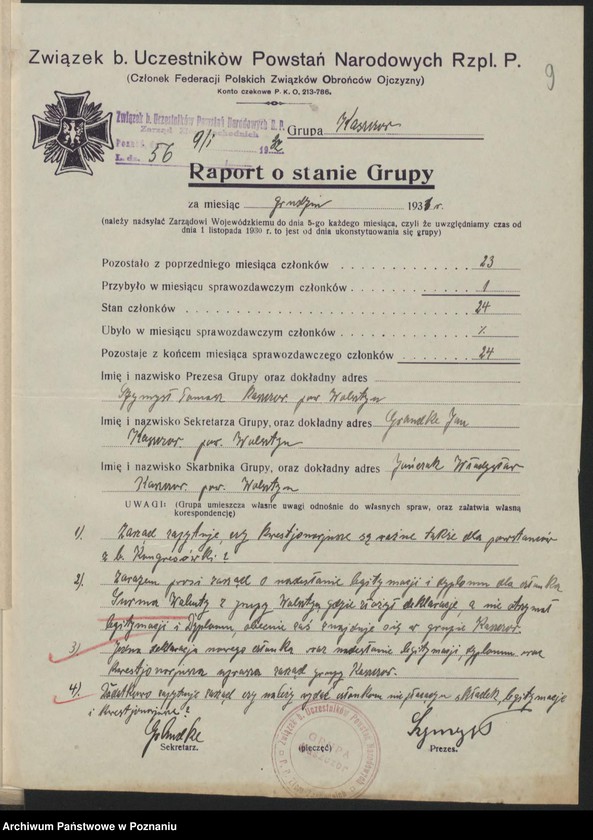 Związek b. Uczestników Powstań Narodowych Rzpl. P.
(Członek Federacji Polskich Związków Obrońców Ojczyzny)
Konto czekowe P. K. O. 213-786.
9
Związek b. Uczestników Powstań Narodowych R. P.
L. dz. 56 9/I 19
Grupa Kaszczor
Raport o stanie Grupy
za miesiąc grudzień 1931 r.
(należy nadsyłać Zarządowi Wojewódzkiemu do dnia 5-go każdego miesiąca, czyli że uwzględniamy czas od
dnia 1 listopada 1930 r. to jest od dnia ukonstytuowania się grupy)
Pozostało z poprzedniego miesiąca członków 23
Przybyło w miesiącu sprawozdawczym członków 1
Stan członków 24
Ubyło w miesiącu sprawozdawczym członków %
Pozostaje z końcem miesiąca sprawozdawczego członków 24
Imię i nazwisko Prezesa Grupy oraz dokładny adres
Kaszczor pow. Wolsztyn
Imię i nazwisko Sekretarza Grupy, oraz dokładny adres Grandke Jan
Kaszczor pow. Wolsztyn
Imię i nazwisko Skarbnika Grupy, oraz dokładny adres Władysław
Kaszczor pow. Wolsztyn
UWAGI: (Grupa umieszcza własne uwagi odnośnie do własnych spraw, oraz załatwia własną
korespondencję)
1). Zarząd zapytuje czy kwestjonarjusze są ważne także dla powstańców
z b. Kongresówki?
2). Zarazem prosi zarząd o nadesłanie legitymacji i dyplomu dla członka
Surma Walenty z grupy Wolsztyn gdzie złożył deklarację a nie otrzymał
legitymacji i Dyplomu, obecnie zaś znajduje się w grupie Kaszczor.
3). Jedna deklaracja nowego członka oraz nadesłanie legitymacji, dyplomu oraz
kwestjonarjusza uprasza zarząd grupy Kaszczor.
4). zapytuje zarząd czy należy wydać członkom składek, legitymacje
i kwestjonarjusz?
Grandke
Sekretarz.
(pieczęć)
Prezes.
Związek b. Uczestników Powstań Narodowych
GRUPA
KASZCZOR
Archiwum Państwowe w Poznaniu